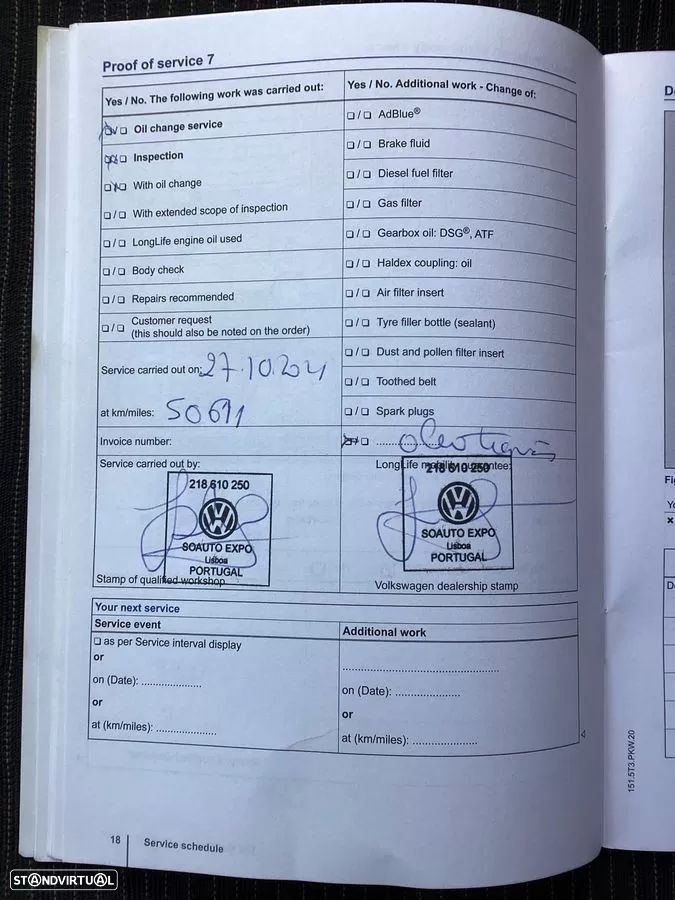 Proof of service 7
Yes / No. The following work was carried out:
☐ / ☐ Oil change service
☐ / ☐ Inspection
☐ / ☐ With oil change
☐ / ☐ With extended scope of inspection
☐ / ☐ LongLife engine oil used
☐ / ☐ Body check
☐ / ☐ Repairs recommended
☐ / ☐ Customer request
(this should also be noted on the order)
Service carried out on: 27.10.2021
at km/miles: 50691
Invoice number:
Service carried out by:
218 610 250
SOAUTO EXPO
Lisboa
PORTUGAL
Stamp of qualified workshop
Yes / No. Additional work - Change of:
☐ / ☐ AdBlue®
☐ / ☐ Brake fluid
☐ / ☐ Diesel fuel filter
☐ / ☐ Gas filter
☐ / ☐ Gearbox oil: DSG®, ATF
☐ / ☐ Haldex coupling: oil
☐ / ☐ Air filter insert
☐ / ☐ Tyre filler bottle (sealant)
☐ / ☐ Dust and pollen filter insert
☐ / ☐ Toothed belt
☐ / ☐ Spark plugs
LongLife mobility guarantee:
218 610 250
SOAUTO EXPO
Lisboa
PORTUGAL
Volkswagen dealership stamp
Your next service
Service event
☐ as per Service interval display
or
on (Date): .....................
or
at (km/miles): .....................
Additional work
on (Date): .....................
or
at (km/miles): .....................
151.5T3.PKW.20
18 Service schedule
STANDVIRTUAL